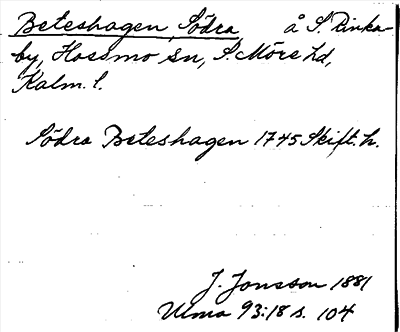 Beteshagen, Södra å S. Rinka-
by, Hossmo sn, S. Möre hd,
Kalm. l.
Södra Beteshagen 1745 Skift. h.
J. Jonsson 1881
Ulma 93:18 s. 104